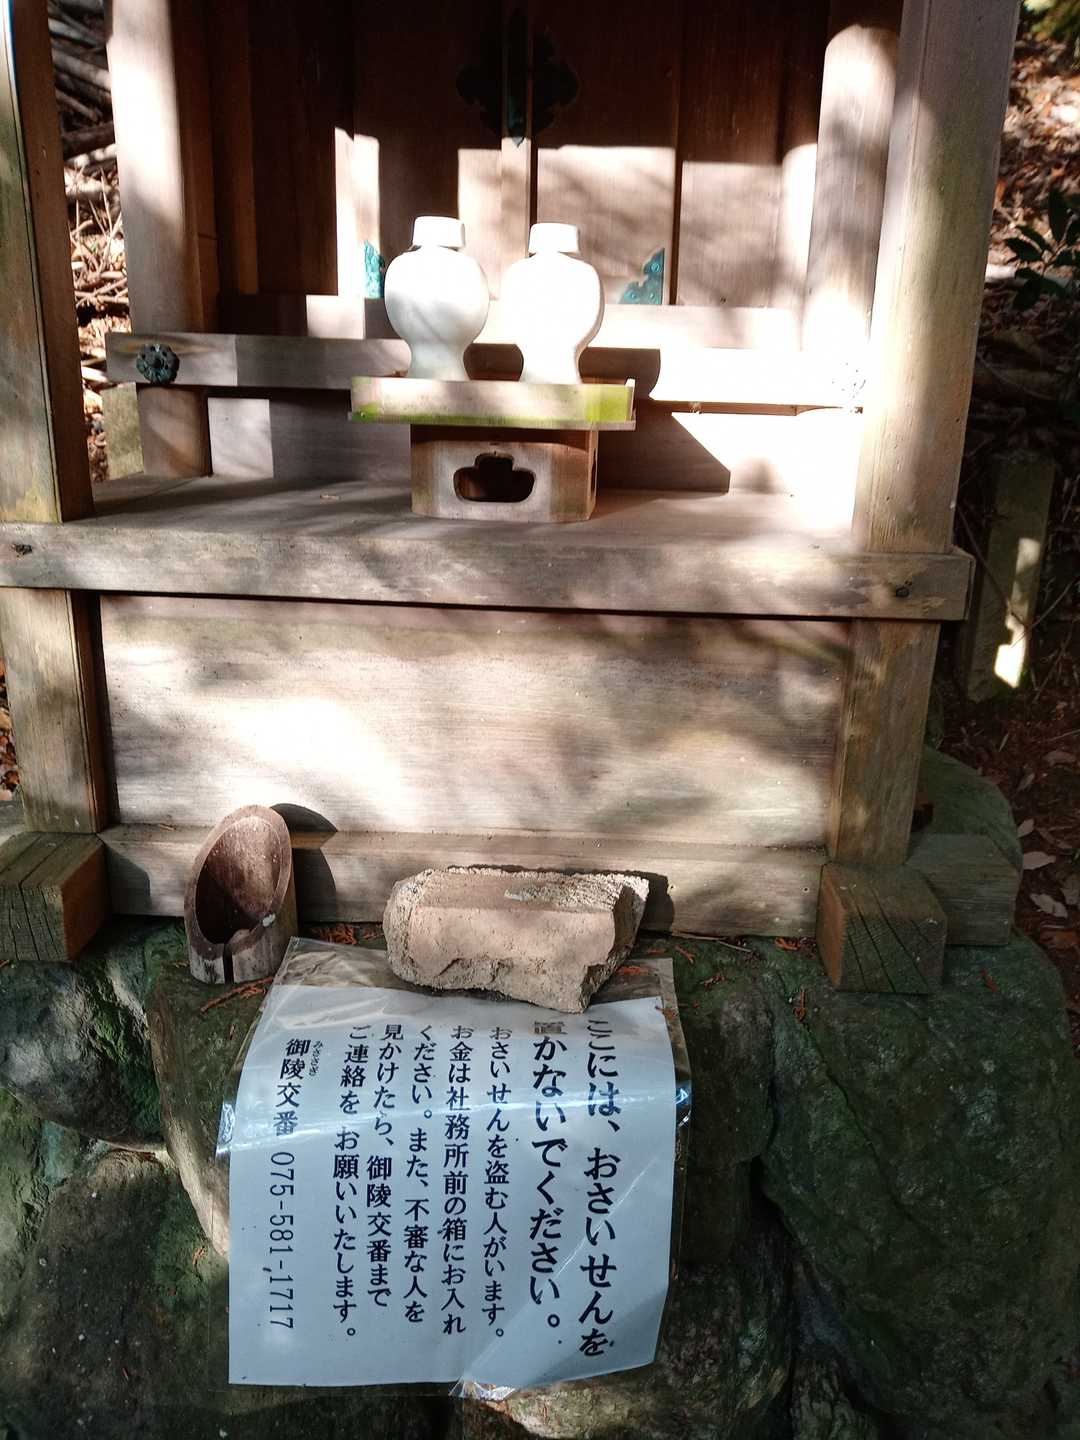 ここには、おさいせんを
置かないでください。
おさいせんを盗む人がいます。
お金は社務所前の箱にお入れ
ください。また、不審な人を
見かけたら、御陵交番まで
ご連絡を お願いいたします。
みささぎ
御陵交番 075-581-1717